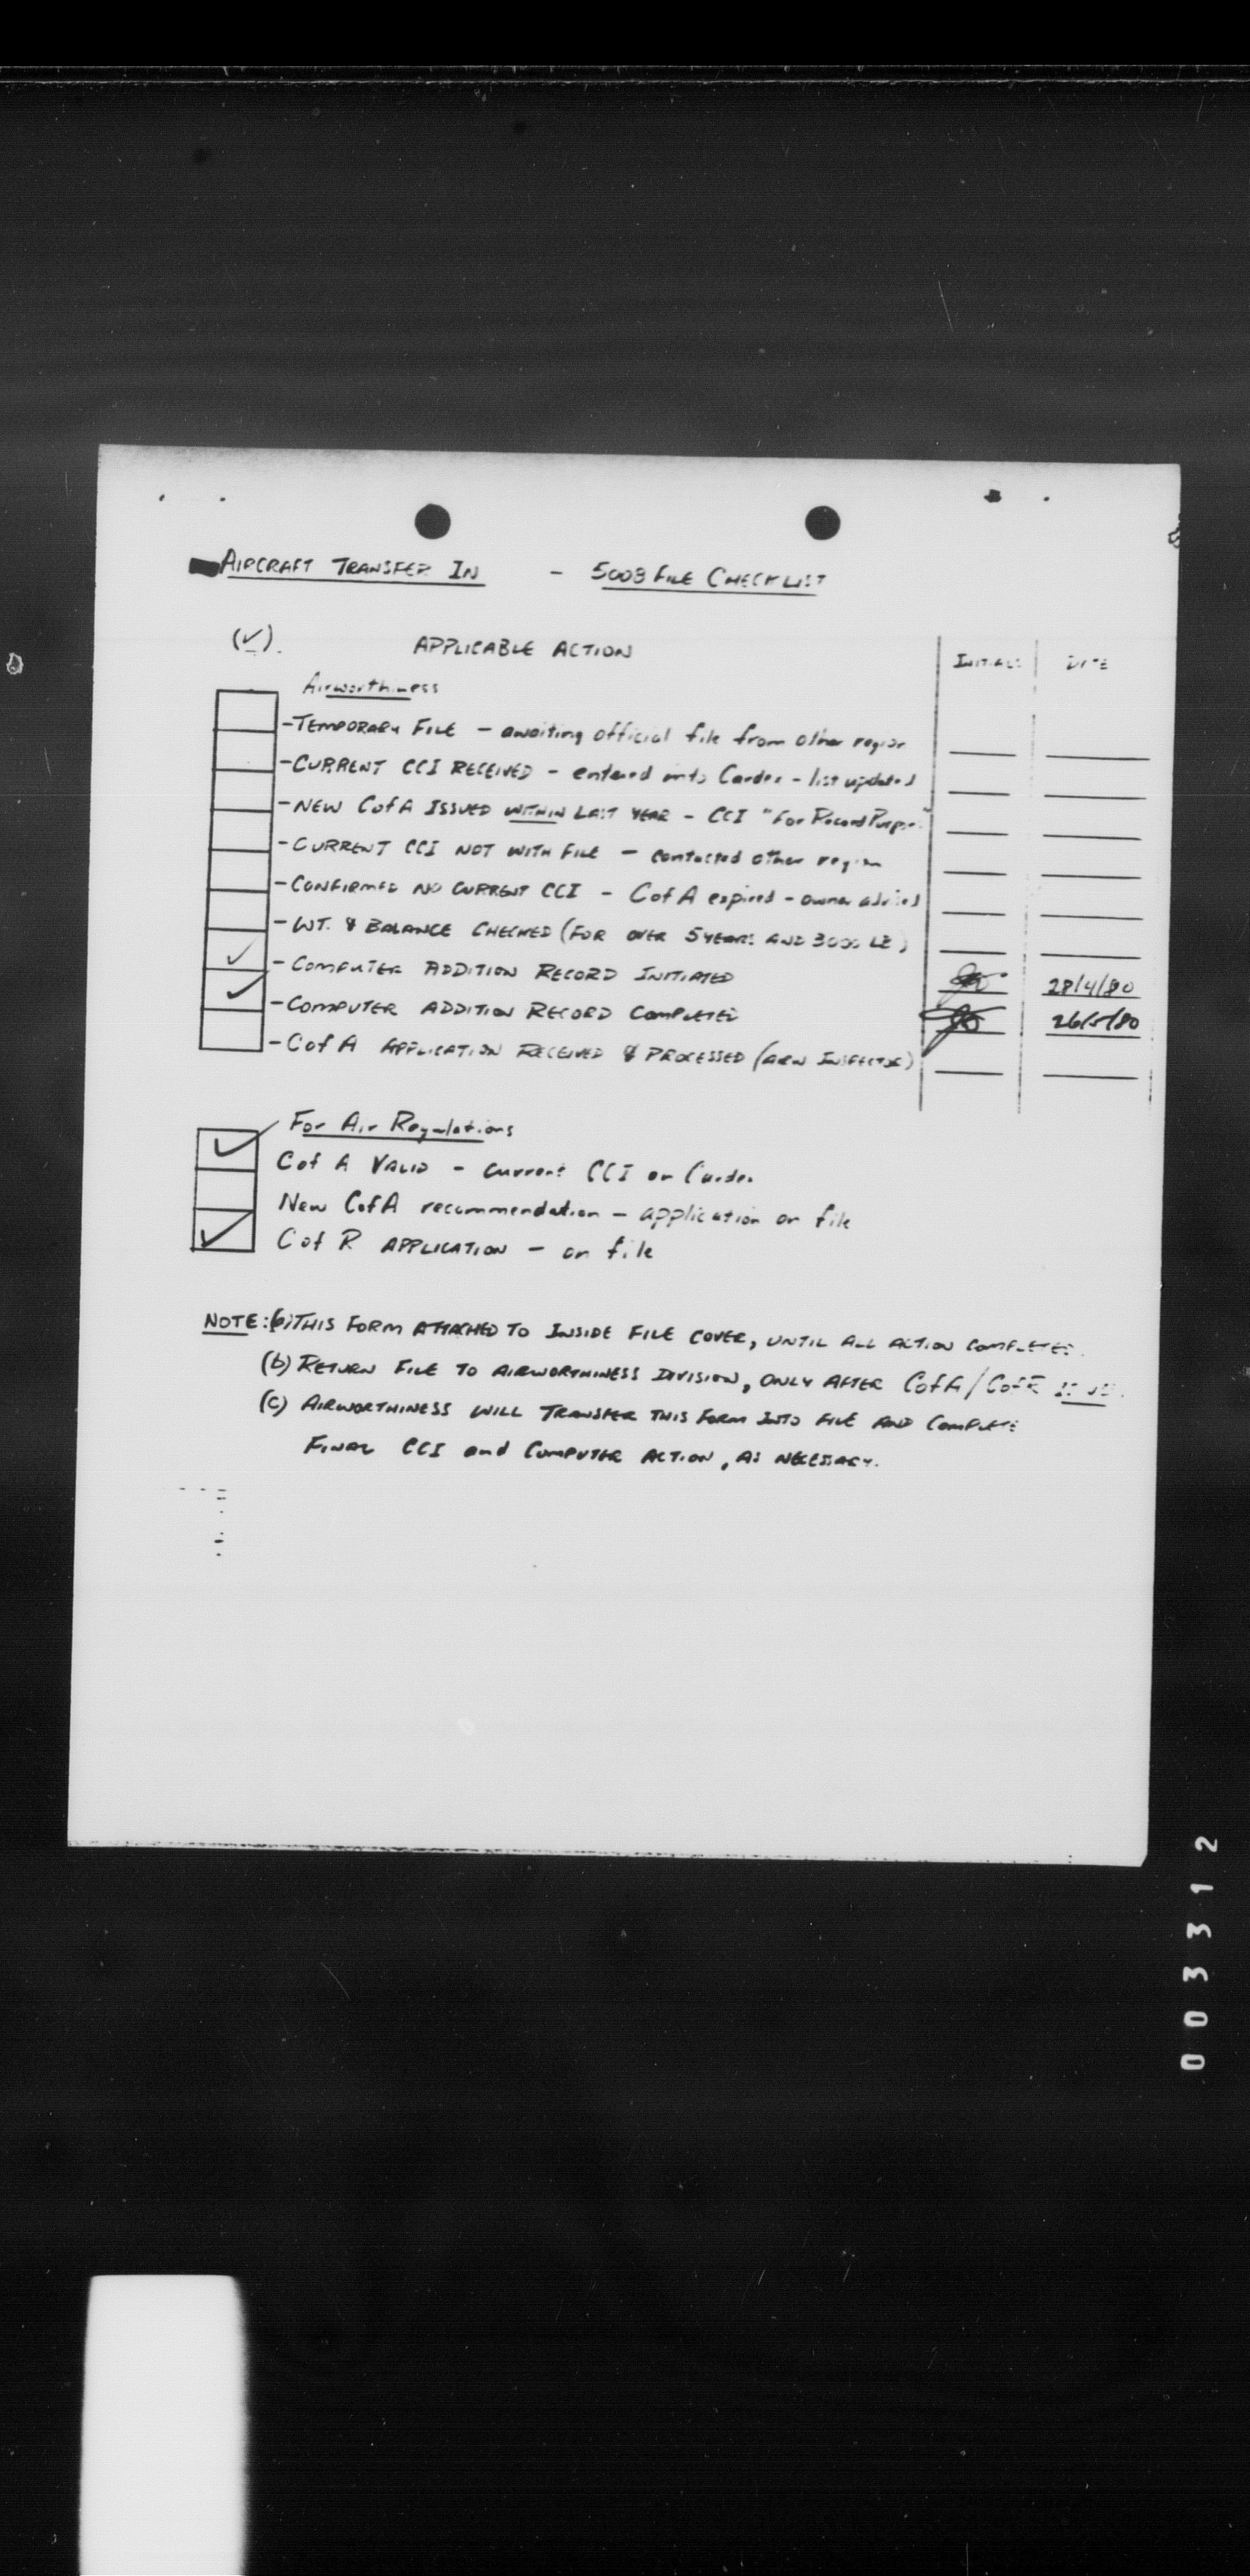 AIRCRAFT TRANSFER IN - 5008 FILE CHECKLIST
(✓). APPLICABLE ACTION INITIALS DATE
Airworthiness
-TEMPORARY FILE - awaiting official file from other region
-CURRENT CCI RECEIVED - entered into Cardex - list updated
-NEW CofA ISSUED WITHIN LAST YEAR - CCI "For Record Purpose"
-CURRENT CCI NOT WITH FILE - contacted other region
-CONFIRMED NO CURRENT CCI - CofA expired - owner advised
-WT. & BALANCE CHECKED (FOR OVER 5 YEARS AND 3000 LB)
✓ -COMPUTER ADDITION RECORD INITIATED 28/4/80
✓ -COMPUTER ADDITION RECORD COMPLETED 26/5/80
-CofA APPLICATION RECEIVED & PROCESSED (ARW INSPECTOR)
For Air Regulations
✓ Cof A VALID - current CCI on Cardex
New CofA recommendation - application on file
✓ Cof R APPLICATION - on file
NOTE: (a) THIS FORM ATTACHED TO INSIDE FILE COVER, UNTIL ALL ACTION COMPLETED.
(b) RETURN FILE TO AIRWORTHINESS DIVISION, ONLY AFTER CofA/CofR
(c) AIRWORTHINESS WILL TRANSFER THIS FORM INTO FILE AND COMPLETE
FINAL CCI and COMPUTER ACTION, AS NECESSARY.
003312